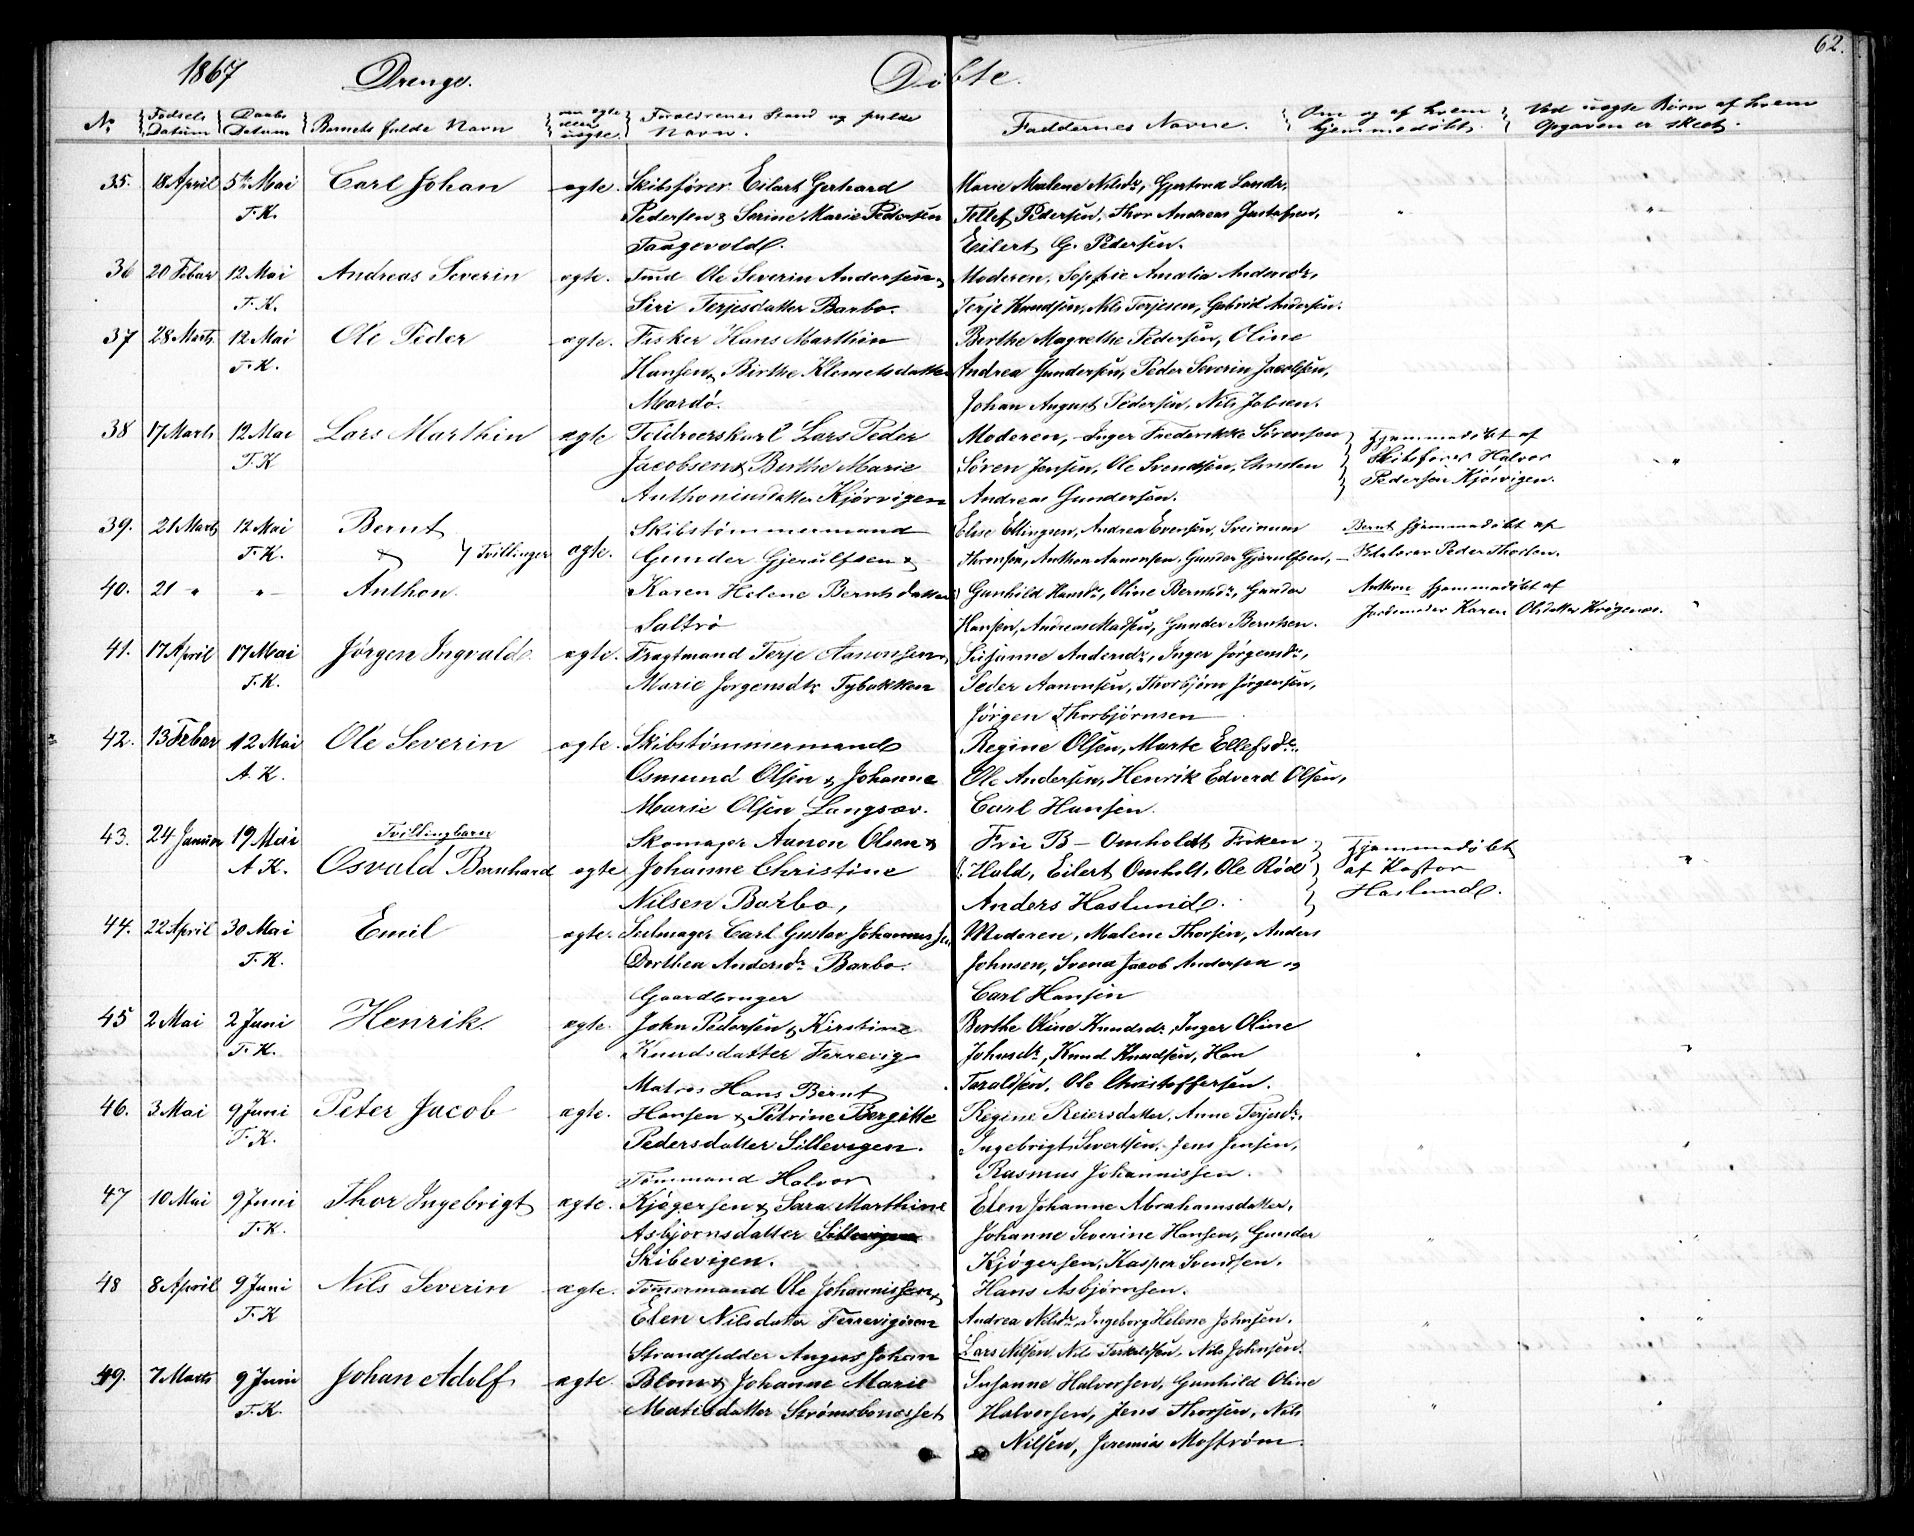 62.
1867 Drenge. Döbte.
No Fødsels Datum Daabs Datum Barnets fulde Navn om ægte eller uægte Forældrenes Stand og fulde Navn. Faddernes Navne. Om og af hvem hjemmedøbt. Ved uægte Børn af hvem Opgaven er skeet.
35. 18 April 5te Mai Carl Johan ægte. Skibsfører Eilart Gerhard Marie Malene Nilsdr, Gjertrud Landr,
T.K. Pedersen & Serine Marie Pedersen Tellef Pedersen, Thor Andreas Gustafsen, " "
Taugevold. Eilert G. Pedersen.
36 20 Febar 12 Mai Andreas Severin ægte. Tmd Ole Severin Andersen & Moderen, Sophie Amalia Andersdr,
T.K. Siri Terjesdatter Barbo. Terje Knudsen, Nils Terjesen, Gabriel Andersen.
37 28 Marts 12 Mai Ole Peder ægte. Fisker Hans Marthin Berthe Magrethe Pedersen, Oline
T.K. Hansen & Birthe Klemetsdatter Andrea Gundersen, Peder Severin Jacobsen,
Mardö. Johan August Pedersen, Nils Jobsen.
38 17 Marts 12 Mai Lars Marthin ægte Toldroerskarl Lars Peder Moderen, Inger Frederikke Sørensen Hjemmedöbt af
T.K. Jacobsen & Berthe Marie Søren Jensen, Ole Svendsen, Christen Skibsfører Halvor "
Anthoniusdatter Kjörvigen Andreas Gundersen. Pedersen Kjörvigen.
39. 21 Marts 12 Mai Bernt Skibstømmermand Elise Ellingsen, Andrea Evensen, Bernt hjemmedöbt af
T.K. & } Tvillinger ægte. Gunder Gjerulfsen & Anthon Aanonsen, Gunder Gjerulfsen, Peder Thorsen.
40. 21 " " Anthon. Karen Helene Berntsdatter Gunhild Hansdr, Oline Berntsdr, Gunder Anthon hjemmedöbt af
Saltrö Hansen, Andreas Madsen, Gunder Berntsen. Jordemoder Karen Olsdatter Krøgenes. "
41. 17 April 17 Mai Jørgen Ingvald. ægte. Fragtmand Terje Aanonsen & Susanne Andersdr, Inger Jørgensdr,
T.K. Marie Jørgensdtr Tybakken Peder Aanonsen, Thorbjørn Jørgensen,
Jørgen Thorbjørnsen
42. 13 Febar 12 Mai Ole Severin ægte. Skibstømmermand Regine Olsen, Marte Ellefsdr.
A.K. Osmund Olsen & Johanne Ole Andersen, Henrik Edverd Olsen,
Marie Olsen Langsæv. Carl Hansen.
43. 24 Januar 19 Mai Tvillingbarn Skomager Aanon Olsen & Frue B- Omholdt, Frøken Hjemmedöbt
A.K. Osvald Bernhard ægte Johanne Christine Huld, Eilert Omholt, Ole Röd af Pastor "
Nilsen Barbo, Anders Haslund. Haslund.
44. 22 April 30 Mai Emil ægte. Seilmager Carl Gustav Johannessen Moderen, Malene Thorsen, Anders
T.K. Dorthea Andersdr Barbo. Johnsen, Svend Jacob Andersen og
Gaardbruger Carl Hansen
45 2 Mai 2 Juni Henrik. ægte. John Pedersen & Kirstine Berthe Oline Knudsdr, Inger Oline
T.K. Knudsdatter Ferrevig Johnsdr, Knud Knudsen, Han " "
Matros Hans Bernt Taraldsen, Ole Christoffersen.
46. 3 Mai 9 Juni Peter Jacob ægte. Hansen & Petrine Bergitte Regine Reiersdatter, Anne Terjesdr,
T.K. Pedersdatter Sillevigen. Ingebrigt Sivertsen, Jens Jensen, " "
Tømmand Halvor Rasmus Johannissen.
47 10 Mai 9 Juni Thor Ingebrigt ægte. Kjøgersen & Sara Marthine Elen Johanne Abrahamsdatter,
T.K. Asbjørnsdatter Sillevigen Johanne Severine Hansen, Gunder " "
Skibevigen. Kjøgersen, Kasper Svendsen.
48 8 April 9 Juni Nils Severin ægte. Tømermand Ole Johannissen & Hans Asbjørnsen.
T.K. Elen Nilsdatter Ferrevigeren Andrea Nilsdr, Ingeborg Helene Johnsen. " "
Strandsidder Johan Lars Nilsen, Nils Terkelsen, Nils Johnsen.
49. 7 Marts 9 Juni Johan Adolf ægte. Blom & Johanne Marie Susanne Halvorsen, Gunhild Oline
T.K. Matisdatter Strømsbonesset Halvorsen, Jens Thorsen, Nils " "
Nilsen, Jeremia Mostrøm.